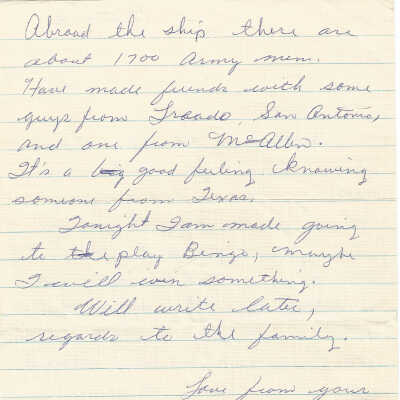 Abroad the ship there are
about 1700 Army men.
Have made friends with some
guys from Laredo, San Antonio,
and one from McAllen.
It's a big good feeling knowing
someone from Texas.
Tonight I am made going
to the play Bingo, maybe
I will win something.
Will write later,
regards to the family.
Love from your